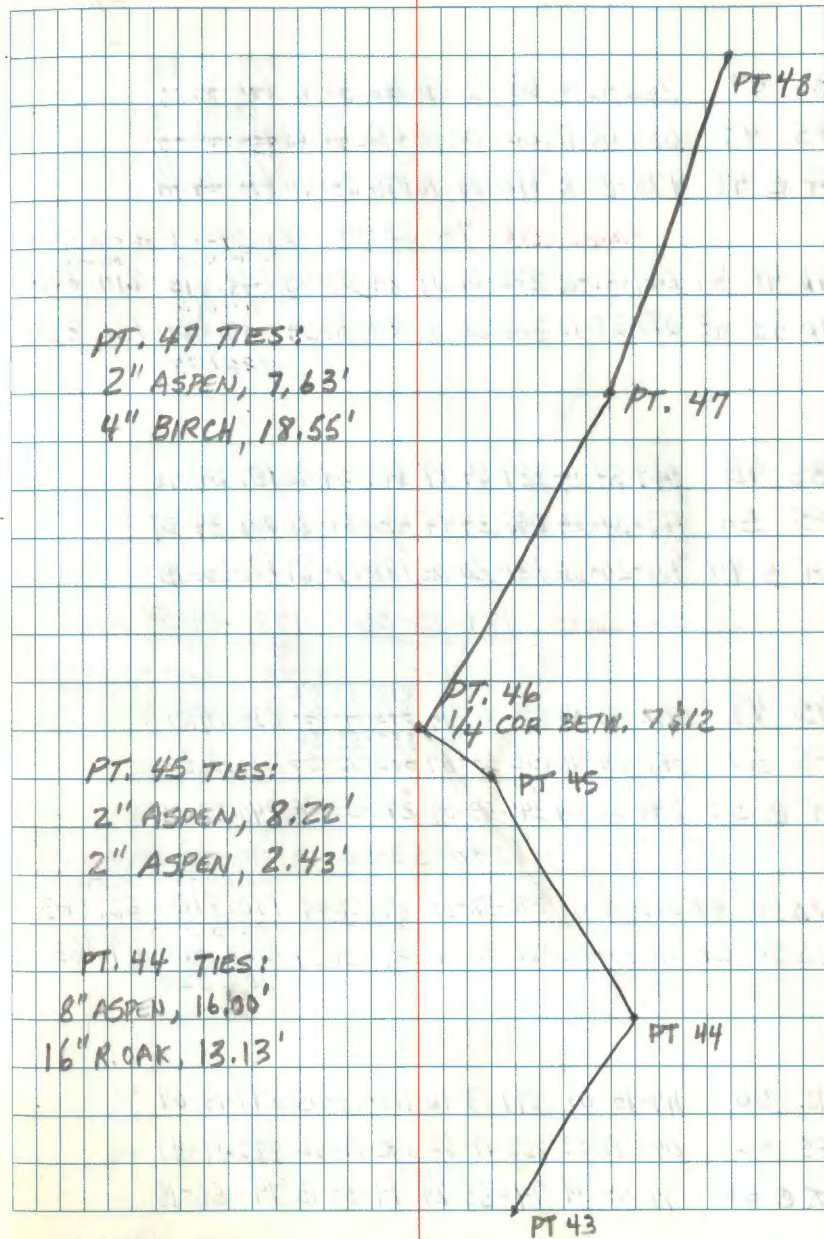 PT 48
PT. 47 TIES:
2" ASPEN, 7.63'
4" BIRCH, 18.55'
PT. 47
PT. 46
1/4 COR BETW. 7 & 12
PT. 45 TIES:
2" ASPEN, 8.22'
2" ASPEN, 2.43'
PT 45
PT. 44 TIES:
8" ASPEN, 16.00'
16" R.OAK, 13.13'
PT 44
PT 43